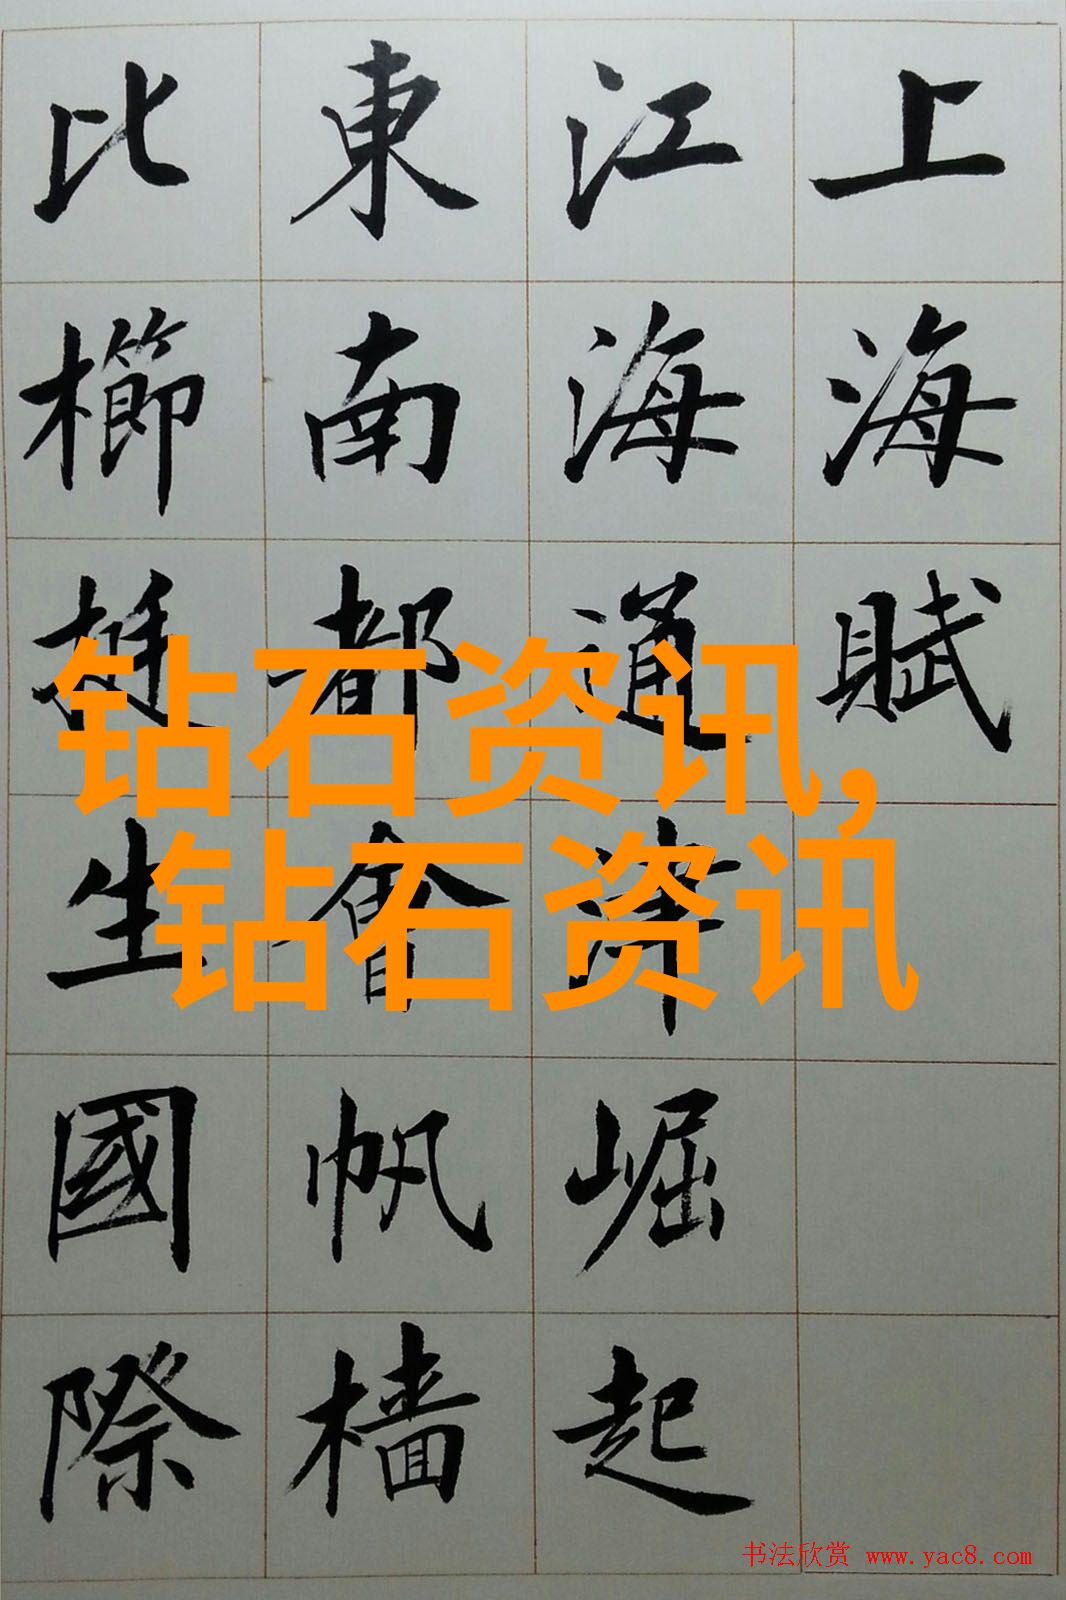 上海賦
江海通津崛起
東南都會帆檣
比櫛挺生國際
钻石资讯,
钻石资讯
书法欣赏 www.yac8.com